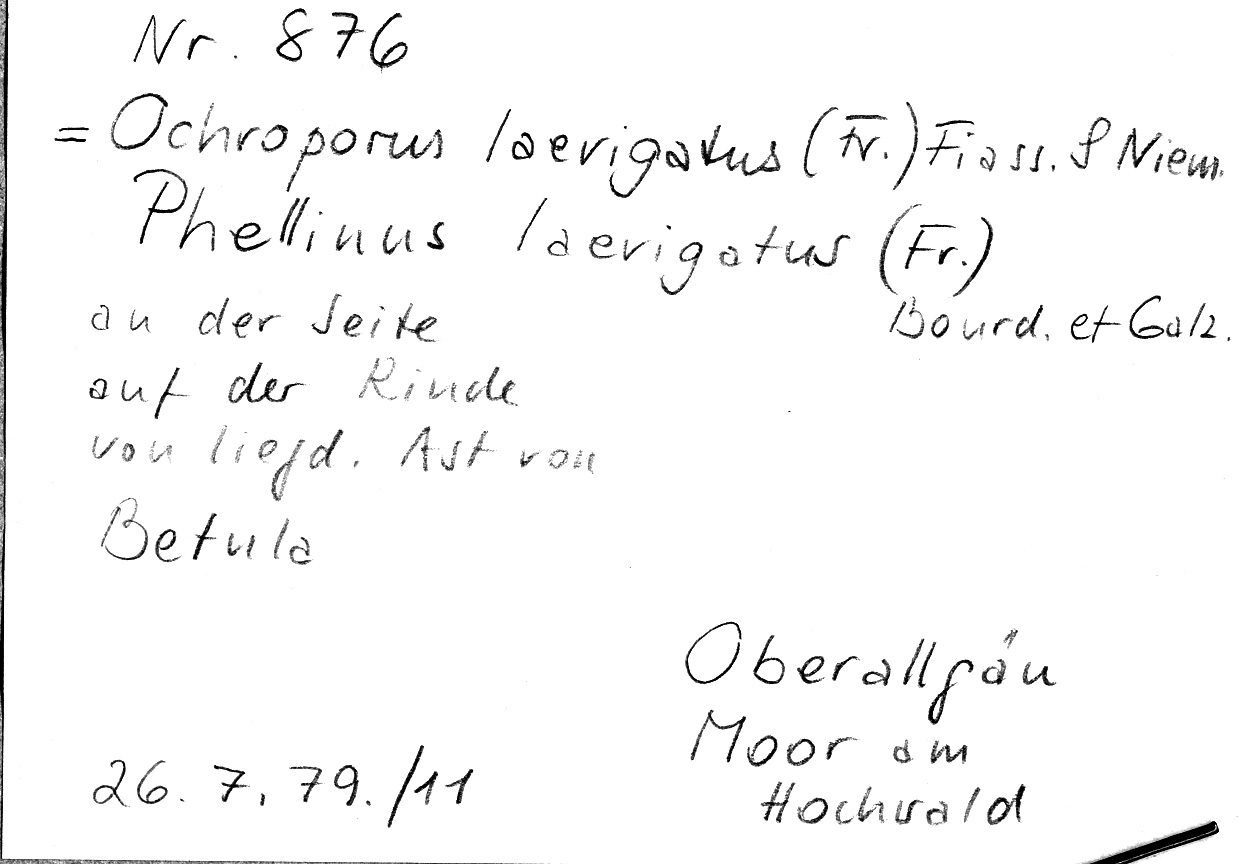 Nr. 876
= Ochroporus laevigatus (Fr.) Fiass. & Niem.
Phellinus laevigatus (Fr.)
Bourd. et Galz.
an der Seite
auf der Rinde
von liegd. Ast von
Betula
Oberallgäu
Moor am
Hochwald
26. 7. 79. /11